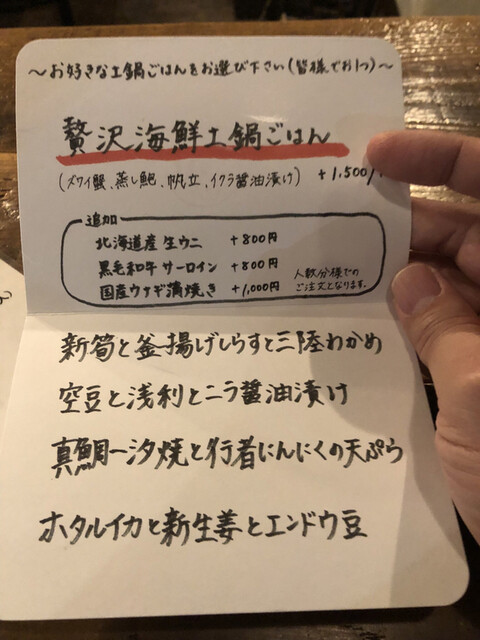 ～お好きな土鍋ごはんをお選び下さい(皆様でお1つ)～
贅沢海鮮土鍋ごはん
(ズワイ蟹、蒸し鮑、帆立、イクラ醤油漬け) +1,500/
追加
北海道産生ウニ +800円
黒毛和牛サーロイン +800円
国産ウナギ蒲焼き +1,000円
人数分様での
ご注文となります。
新筍と釜揚げしらすと三陸わかめ
空豆と浅利とニラ醤油漬け
真鯛一汐焼と行者にんにくの天ぷら
ホタルイカと新生姜とエンドウ豆